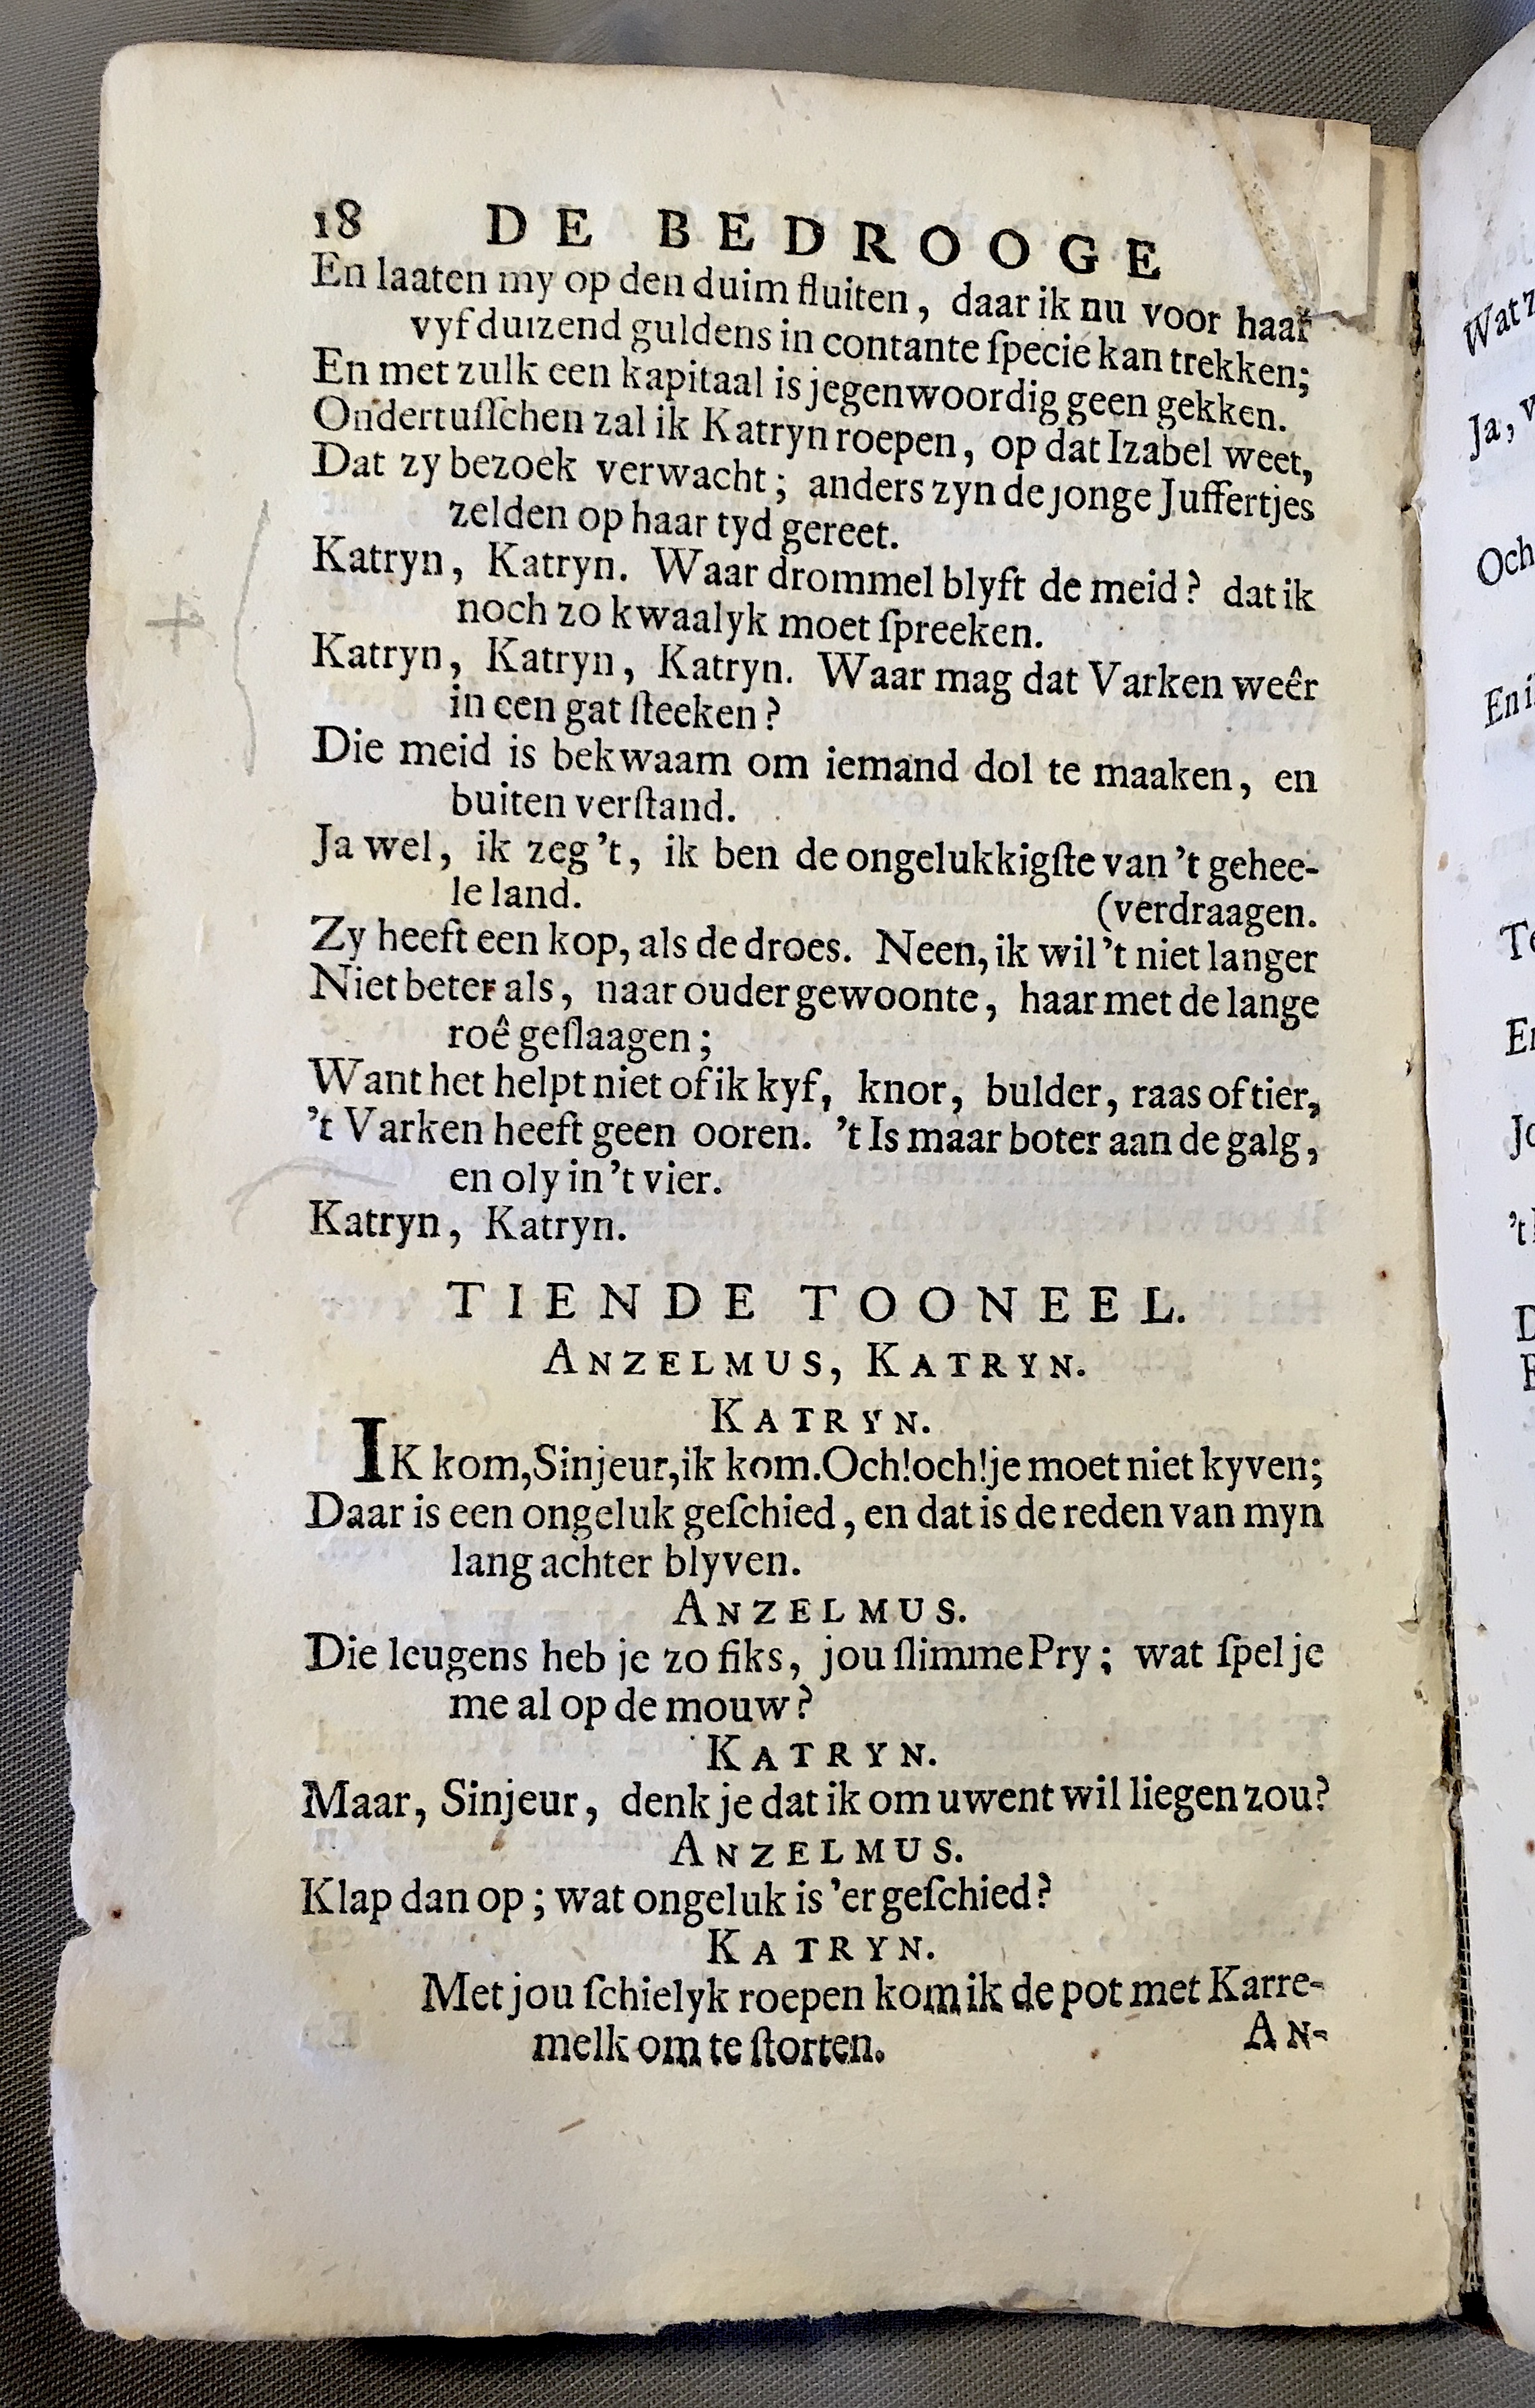 18 DE BEDROOGE
En laaten my op den duim fluiten, daar ik nu voor haar
vyf duizend guldens in contante ſpecie kan trekken;
En met zulk een kapitaal is jegenwoordig geen gekken.
Ondertuſſchen zal ik Katryn roepen, op dat Izabel weet,
Dat zy bezoek verwacht; anders zyn de jonge Juffertjes
zelden op haar tyd gereet.
Katryn, Katryn. Waar drommel blyft de meid? dat ik
noch zo kwaalyk moet ſpreeken.
Katryn, Katryn, Katryn. Waar mag dat Varken weêr
in een gat ſteeken?
Die meid is bekwaam om iemand dol te maaken, en
buiten verſtand.
Ja wel, ik zeg 't, ik ben de ongelukkigſte van 't gehee-
le land. (verdraagen.
Zy heeft een kop, als de droes. Neen, ik wil 't niet langer
Niet beter als, naar ouder gewoonte, haar met de lange
roê geſlaagen;
Want het helpt niet of ik kyf, knor, bulder, raas of tier,
't Varken heeft geen ooren. 't Is maar boter aan de galg,
en oly in 't vier.
Katryn, Katryn.
TIENDE TOONEEL.
ANZELMUS, KATRYN.
KATRYN.
IK kom, Sinjeur, ik kom. Och! och! je moet niet kyven;
Daar is een ongeluk geſchied, en dat is de reden van myn
lang achter blyven.
ANZELMUS.
Die leugens heb je zo fiks, jou ſlimme Pry; wat ſpel je
me al op de mouw?
KATRYN.
Maar, Sinjeur, denk je dat ik om uwent wil liegen zou?
ANZELMUS.
Klap dan op; wat ongeluk is 'er geſchied?
KATRYN.
Met jou ſchielyk roepen kom ik de pot met Karre-
melk om te ſtorten.
AN-
Ja,
Och